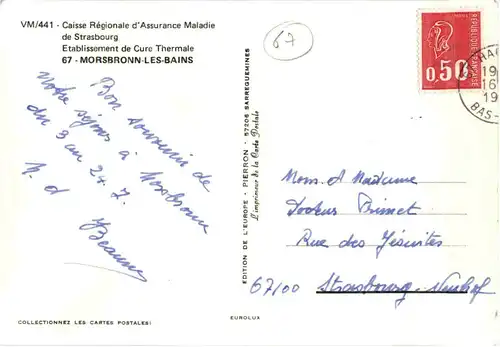 VM/441 - Caisse Régionale d'Assurance Maladie
de Strasbourg
Etablissement de Cure Thermale
67 - MORSBRONN-LES-BAINS
67
Bon souvenir de
notre séjour à Morsbronn
du 3 au 24.7.
REPUBLIQUE FRANÇAISE
0,50
19
16
19
BAS-
EDITION DE L'EUROPE - PIERRON - 57206 SARREGUEMINES
L'imprimeur de la Carte Postale
Mons. et Madame
Rue des Jésuites
67100 Strasbourg - Neuhof
COLLECTIONNEZ LES CARTES POSTALES!
EUROLUX